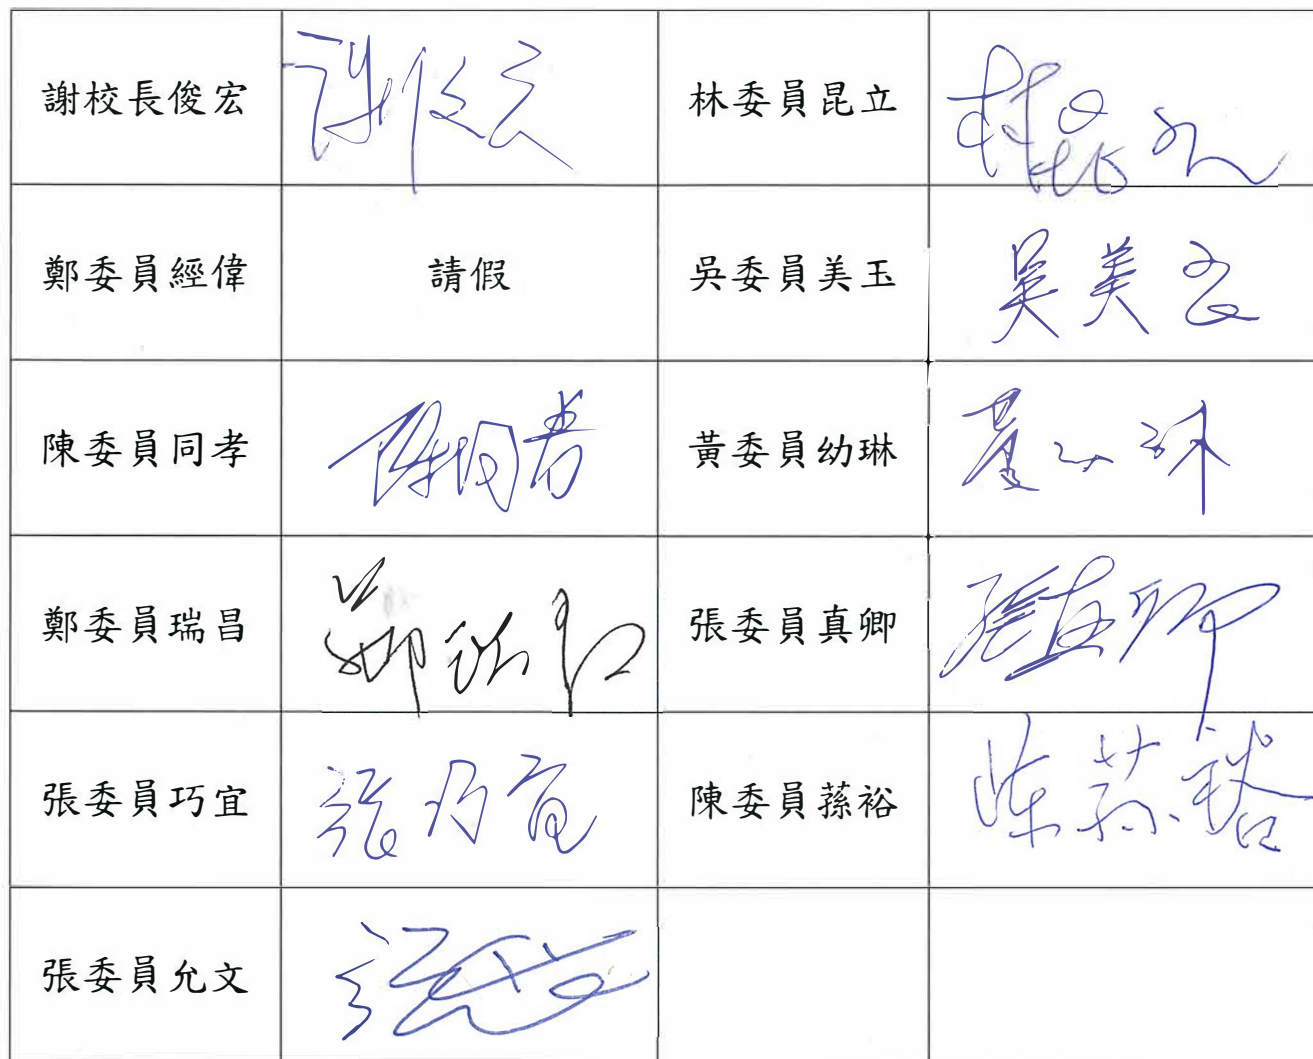 謝校長俊宏 謝俊宏 林委員昆立 林昆立
鄭委員經偉 請假 吳委員美玉 吳美玉
陳委員同孝 陳同孝 黃委員幼琳 黃幼琳
鄭委員瑞昌 鄭瑞昌 張委員真卿 張真卿
張委員巧宜 張巧宜 陳委員蓀裕 陳蓀裕
張委員允文 張允文